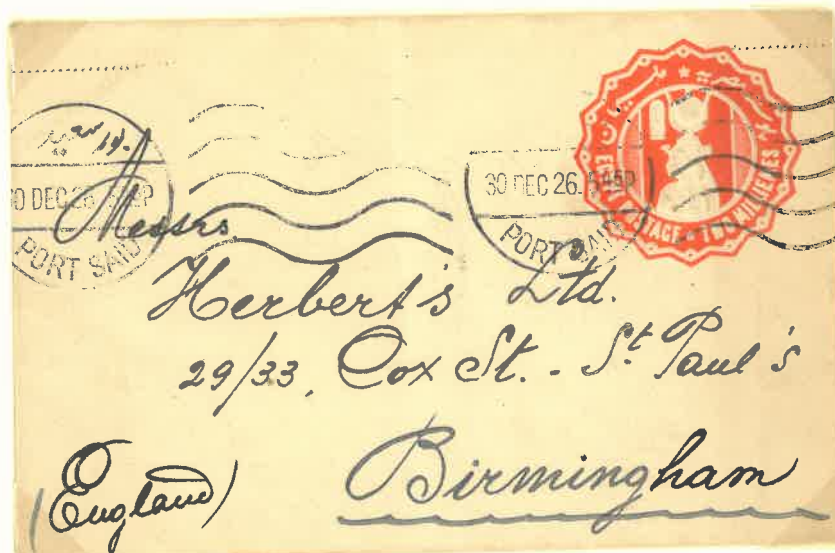 بور سعيد
30 DEC 26. 545P
PORT SAID
30 DEC 26. 545P
PORT SAID
EGYPT POSTAGE • TEN MILLIEMES
Messrs
Herbert's Ltd.
29/33, Cox St. - St. Paul's
Birmingham
(England)